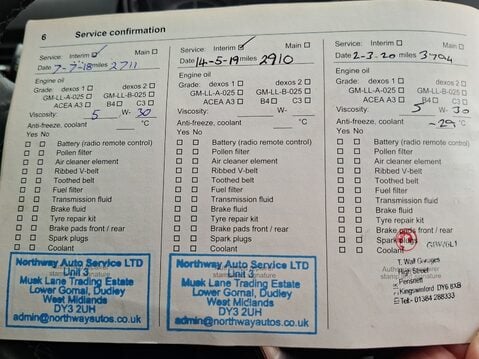 6 Service confirmation
Service: Interim ☑ Main ☐
Date 7-7-18 miles 2711
Engine oil
Grade: dexos 1 ☐ dexos 2 ☐
GM-LL-A-025 ☐ GM-LL-B-025 ☐
ACEA A3 ☐ B4 ☐ C3 ☐
Viscosity: 5 W- 30
Anti-freeze, coolant °C
Yes No
☐ ☐ Battery (radio remote control)
☐ ☐ Pollen filter
☐ ☐ Air cleaner element
☐ ☐ Ribbed V-belt
☐ ☐ Toothed belt
☐ ☐ Fuel filter
☐ ☐ Transmission fluid
☐ ☐ Brake fluid
☐ ☐ Tyre repair kit
☐ ☐ Brake pads front / rear
☐ ☐ Spark plugs
☐ ☐ Coolant
Northway Auto Service LTD
Unit 3
Musk Lane Trading Estate
Lower Gornal, Dudley
West Midlands
DY3 2UH
admin@northwayautos.co.uk
Service: Interim ☑ Main ☐
Date 14-5-19 miles 2910
Engine oil
Grade: dexos 1 ☐ dexos 2 ☐
GM-LL-A-025 ☐ GM-LL-B-025 ☐
ACEA A3 ☐ B4 ☐ C3 ☐
Viscosity: W-
Anti-freeze, coolant °C
Yes No
☐ ☐ Battery (radio remote control)
☐ ☐ Pollen filter
☐ ☐ Air cleaner element
☐ ☐ Ribbed V-belt
☐ ☐ Toothed belt
☐ ☐ Fuel filter
☐ ☐ Transmission fluid
☐ ☐ Brake fluid
☐ ☐ Tyre repair kit
☐ ☐ Brake pads front / rear
☐ ☐ Spark plugs
☐ ☐ Coolant
Northway Auto Service LTD
Unit 3
Musk Lane Trading Estate
Lower Gornal, Dudley
West Midlands
DY3 2UH
admin@northwayautos.co.uk
Service: Interim ☐ Main ☐
Date 2-3-20 miles 3704
Engine oil
Grade: dexos 1 ☐ dexos 2 ☐
GM-LL-A-025 ☐ GM-LL-B-025 ☐
ACEA A3 ☐ B4 ☐ C3 ☐
Viscosity: 5 W- 30
Anti-freeze, coolant -29 °C
Yes No
☐ ☐ Battery (radio remote control)
☐ ☐ Pollen filter
☐ ☐ Air cleaner element
☐ ☐ Ribbed V-belt
☐ ☐ Toothed belt
☐ ☐ Fuel filter
☐ ☐ Transmission fluid
☐ ☐ Brake fluid
☐ ☐ Tyre repair kit
☐ ☐ Brake pads front / rear
☐ ☐ Spark plugs
☐ ☐ Coolant
T. Wall Garages
High Street
Pensnett
Kingswinford DY6 8XB
Tel:- 01384 288333